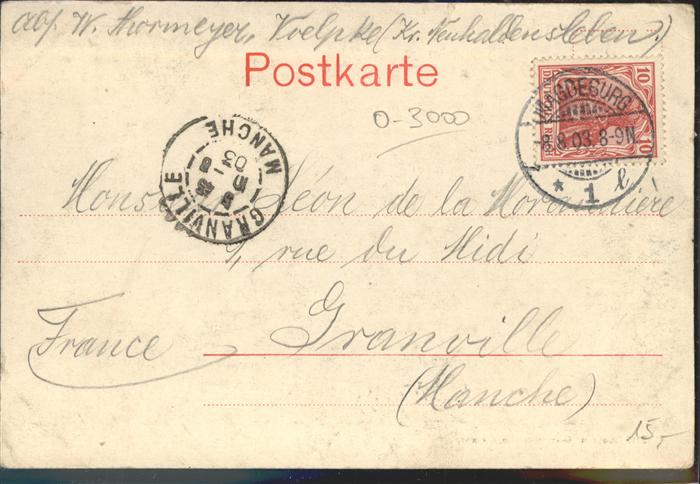 Abs. W. Thormeyer, Voelpke (Kr. Neuhaldensleben.)
Postkarte
0-3000
10 10
MAGDEBURG
8.8.03.8-9N.
* 1 l
10
GRANVILLE
MANCHE
03
Monsieur Léon de la Morandière
9, rue du Midi
Granville
France
(Manche)
15,-